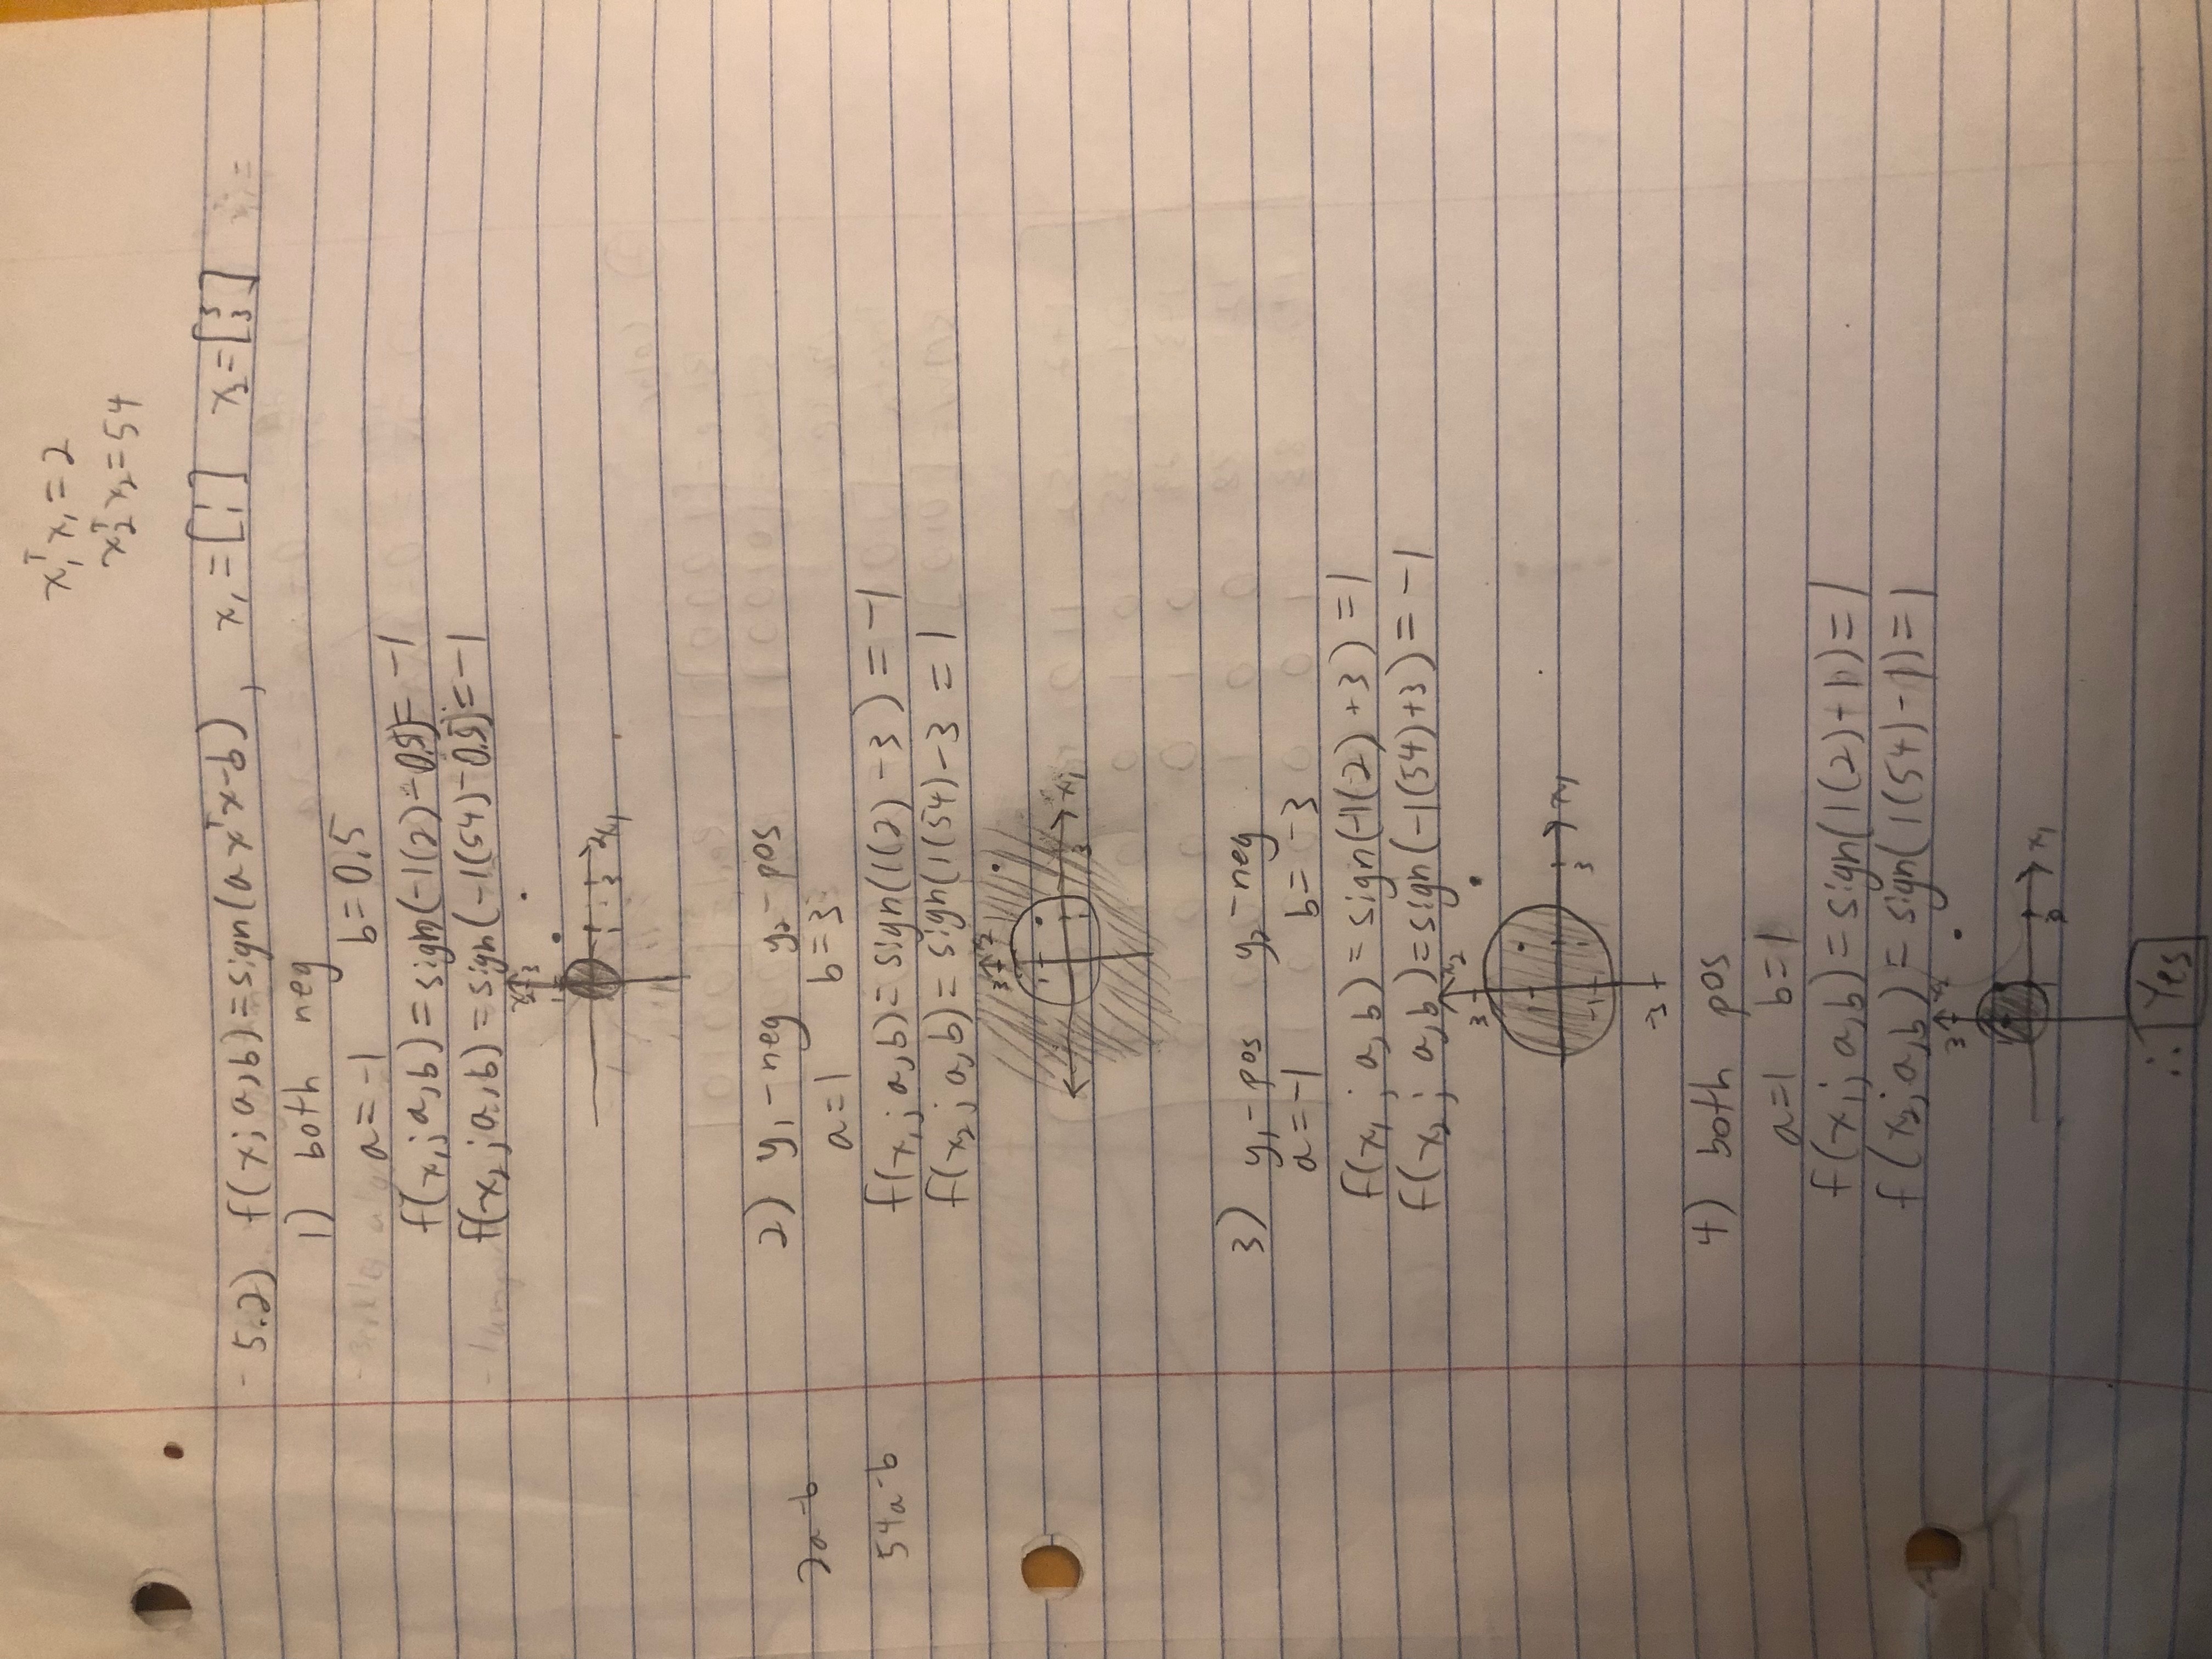 x₁ᵀx₁ = 2
x₂ᵀx₂ = 54
5.2) f(x; a,b) = sign(a xᵀx-b), x₁ = [1 1] x₂ = [3 3]
1) both neg
a = -1 b = 0.5
f(x₁; a,b) = sign(-1(2) - 0.5) = -1
f(x₂; a,b) = sign(-1(54) - 0.5) = -1
x₂ 3
1
1 3 x₁
2) y₁ - neg y₂ - pos
2a - b
a = 1 b = 3
54a - b
f(x₁; a,b) = sign(1(2) - 3) = -1
f(x₂; a,b) = sign(1(54) - 3 = 1
3 x₂
1
1 3 x₁
3) y₁ - pos y₂ - neg
a = -1 b = -3
f(x₁; a,b) = sign(-1(2) + 3) = 1
f(x₂; a,b) = sign(-1(54) + 3) = -1
x₂
3
1
x₁
-1 1 3
-3
4) both pos
a = 1 b = 1
f(x₁; a,b) = sign(1(2) - 1) = 1
f(x₂; a,b) = sign(1(54) - 1) = 1
3 x₂
x₁
1 3
∴ Yes